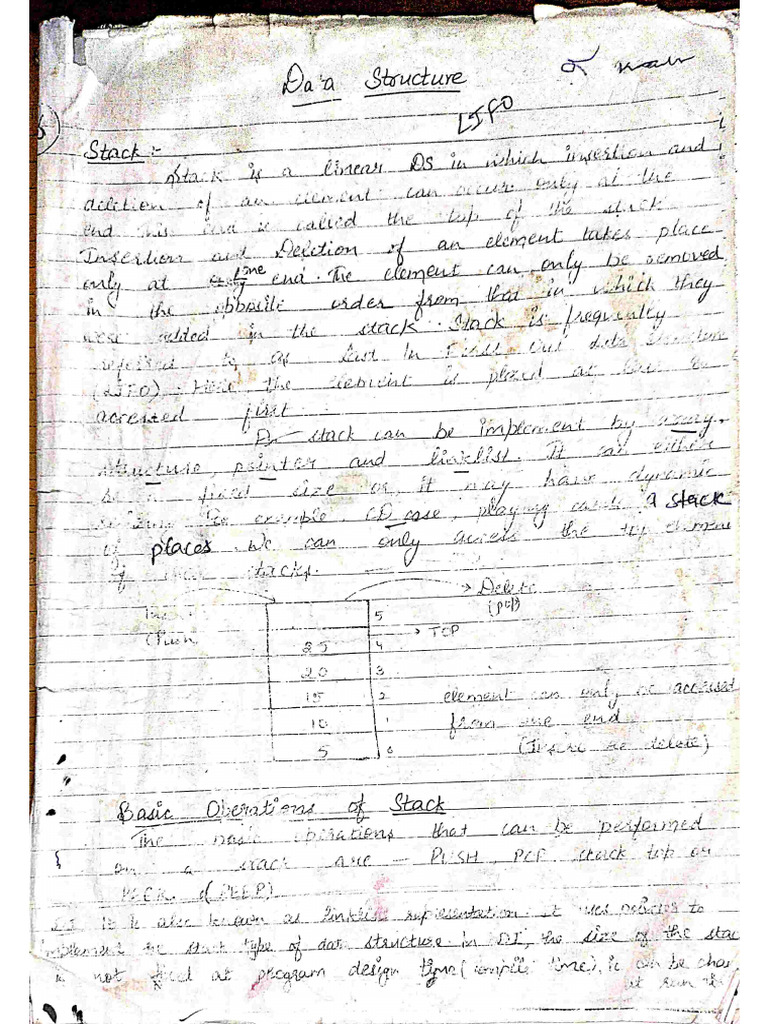 Data Structure
LIFO
Stack :-
Stack is a linear DS in which insertion and
deletion of an element can occur only at the
end this end is called the top of the stack
Insertion and Deletion of an element takes place
only at one end. The element can only be removed
in the opposite order from that in which they
were added in the stack. Stack is frequently
referred to as Last In First Out data structure
(LIFO). Here the element is placed at last
accessed first.
A stack can be implement by array,
structure, pointer and linklist. It can either
be a fixed size or it may have dynamic
For example, CD case, playing cards a stack
of places. We can only access the top element
of stacks.
Delete
(pop)
Insert
(Push
5
TOP
25 4
20 3
15 2 element can only be accessed
10 1 from one end
5 0 (Insert delete)
Basic Operations of Stack
The basic operations that can be performed
on a stack are - PUSH, POP stack top or
PEEK (PEEP)
It is also known as linklist representation. It uses to
implement the stack type of data structure in DI, the size of the stac
is not fixed at program design time (compile time), it can be chan
at run